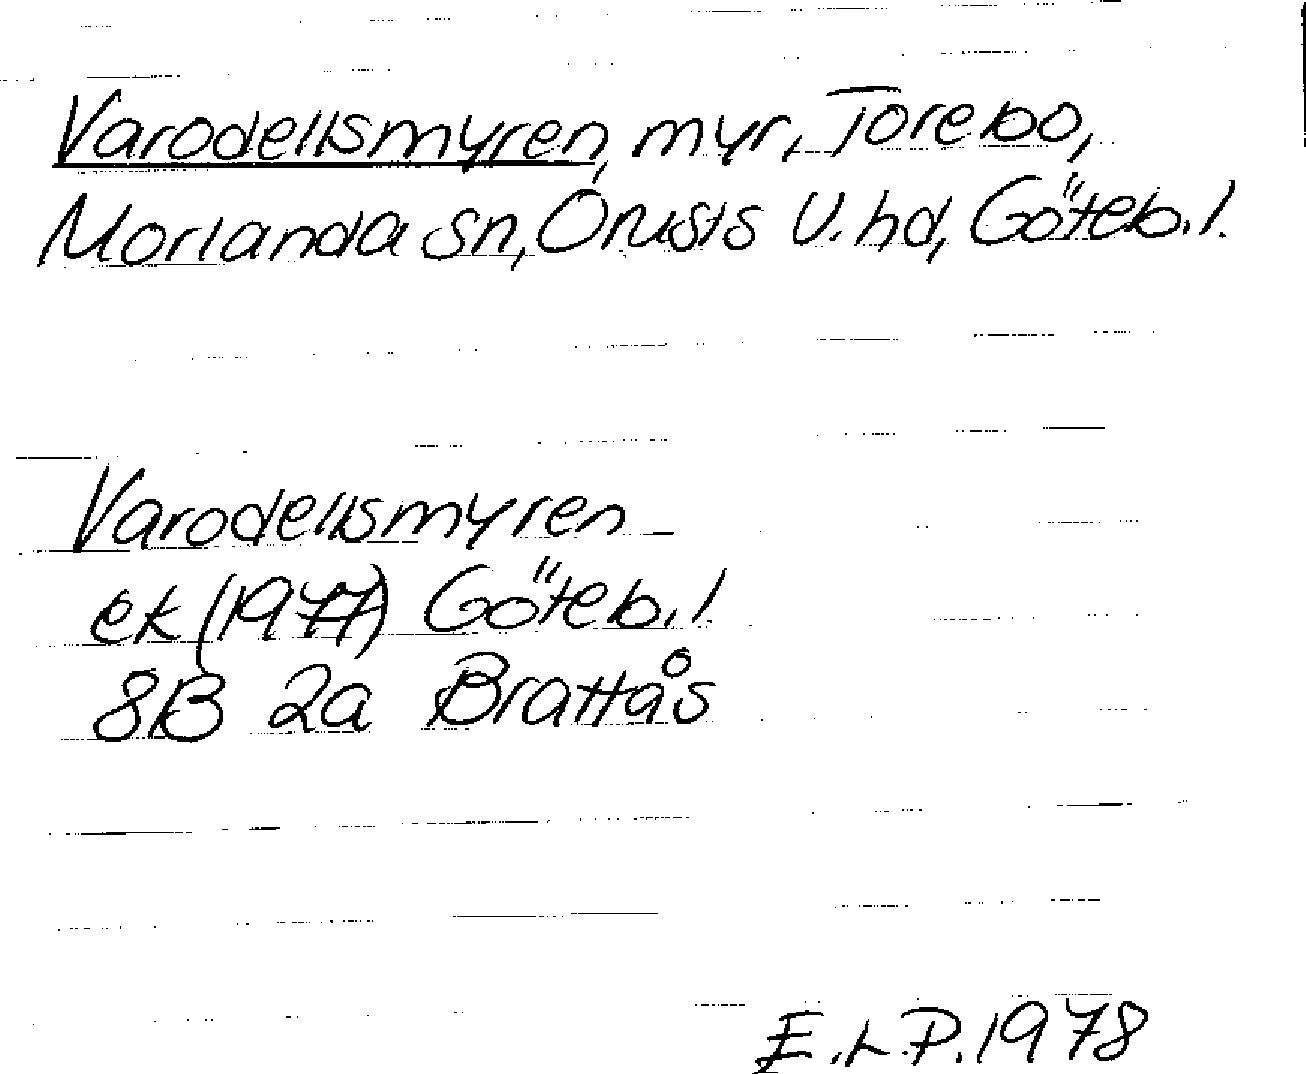 Varodellsmyren, myr, Torebo,
Morlanda sn, Orusts V. hd, Göteb. l.
Varodellsmyren
ek (1977) Göteb. l.
8B 2a Brattås
E.L.P. 1978